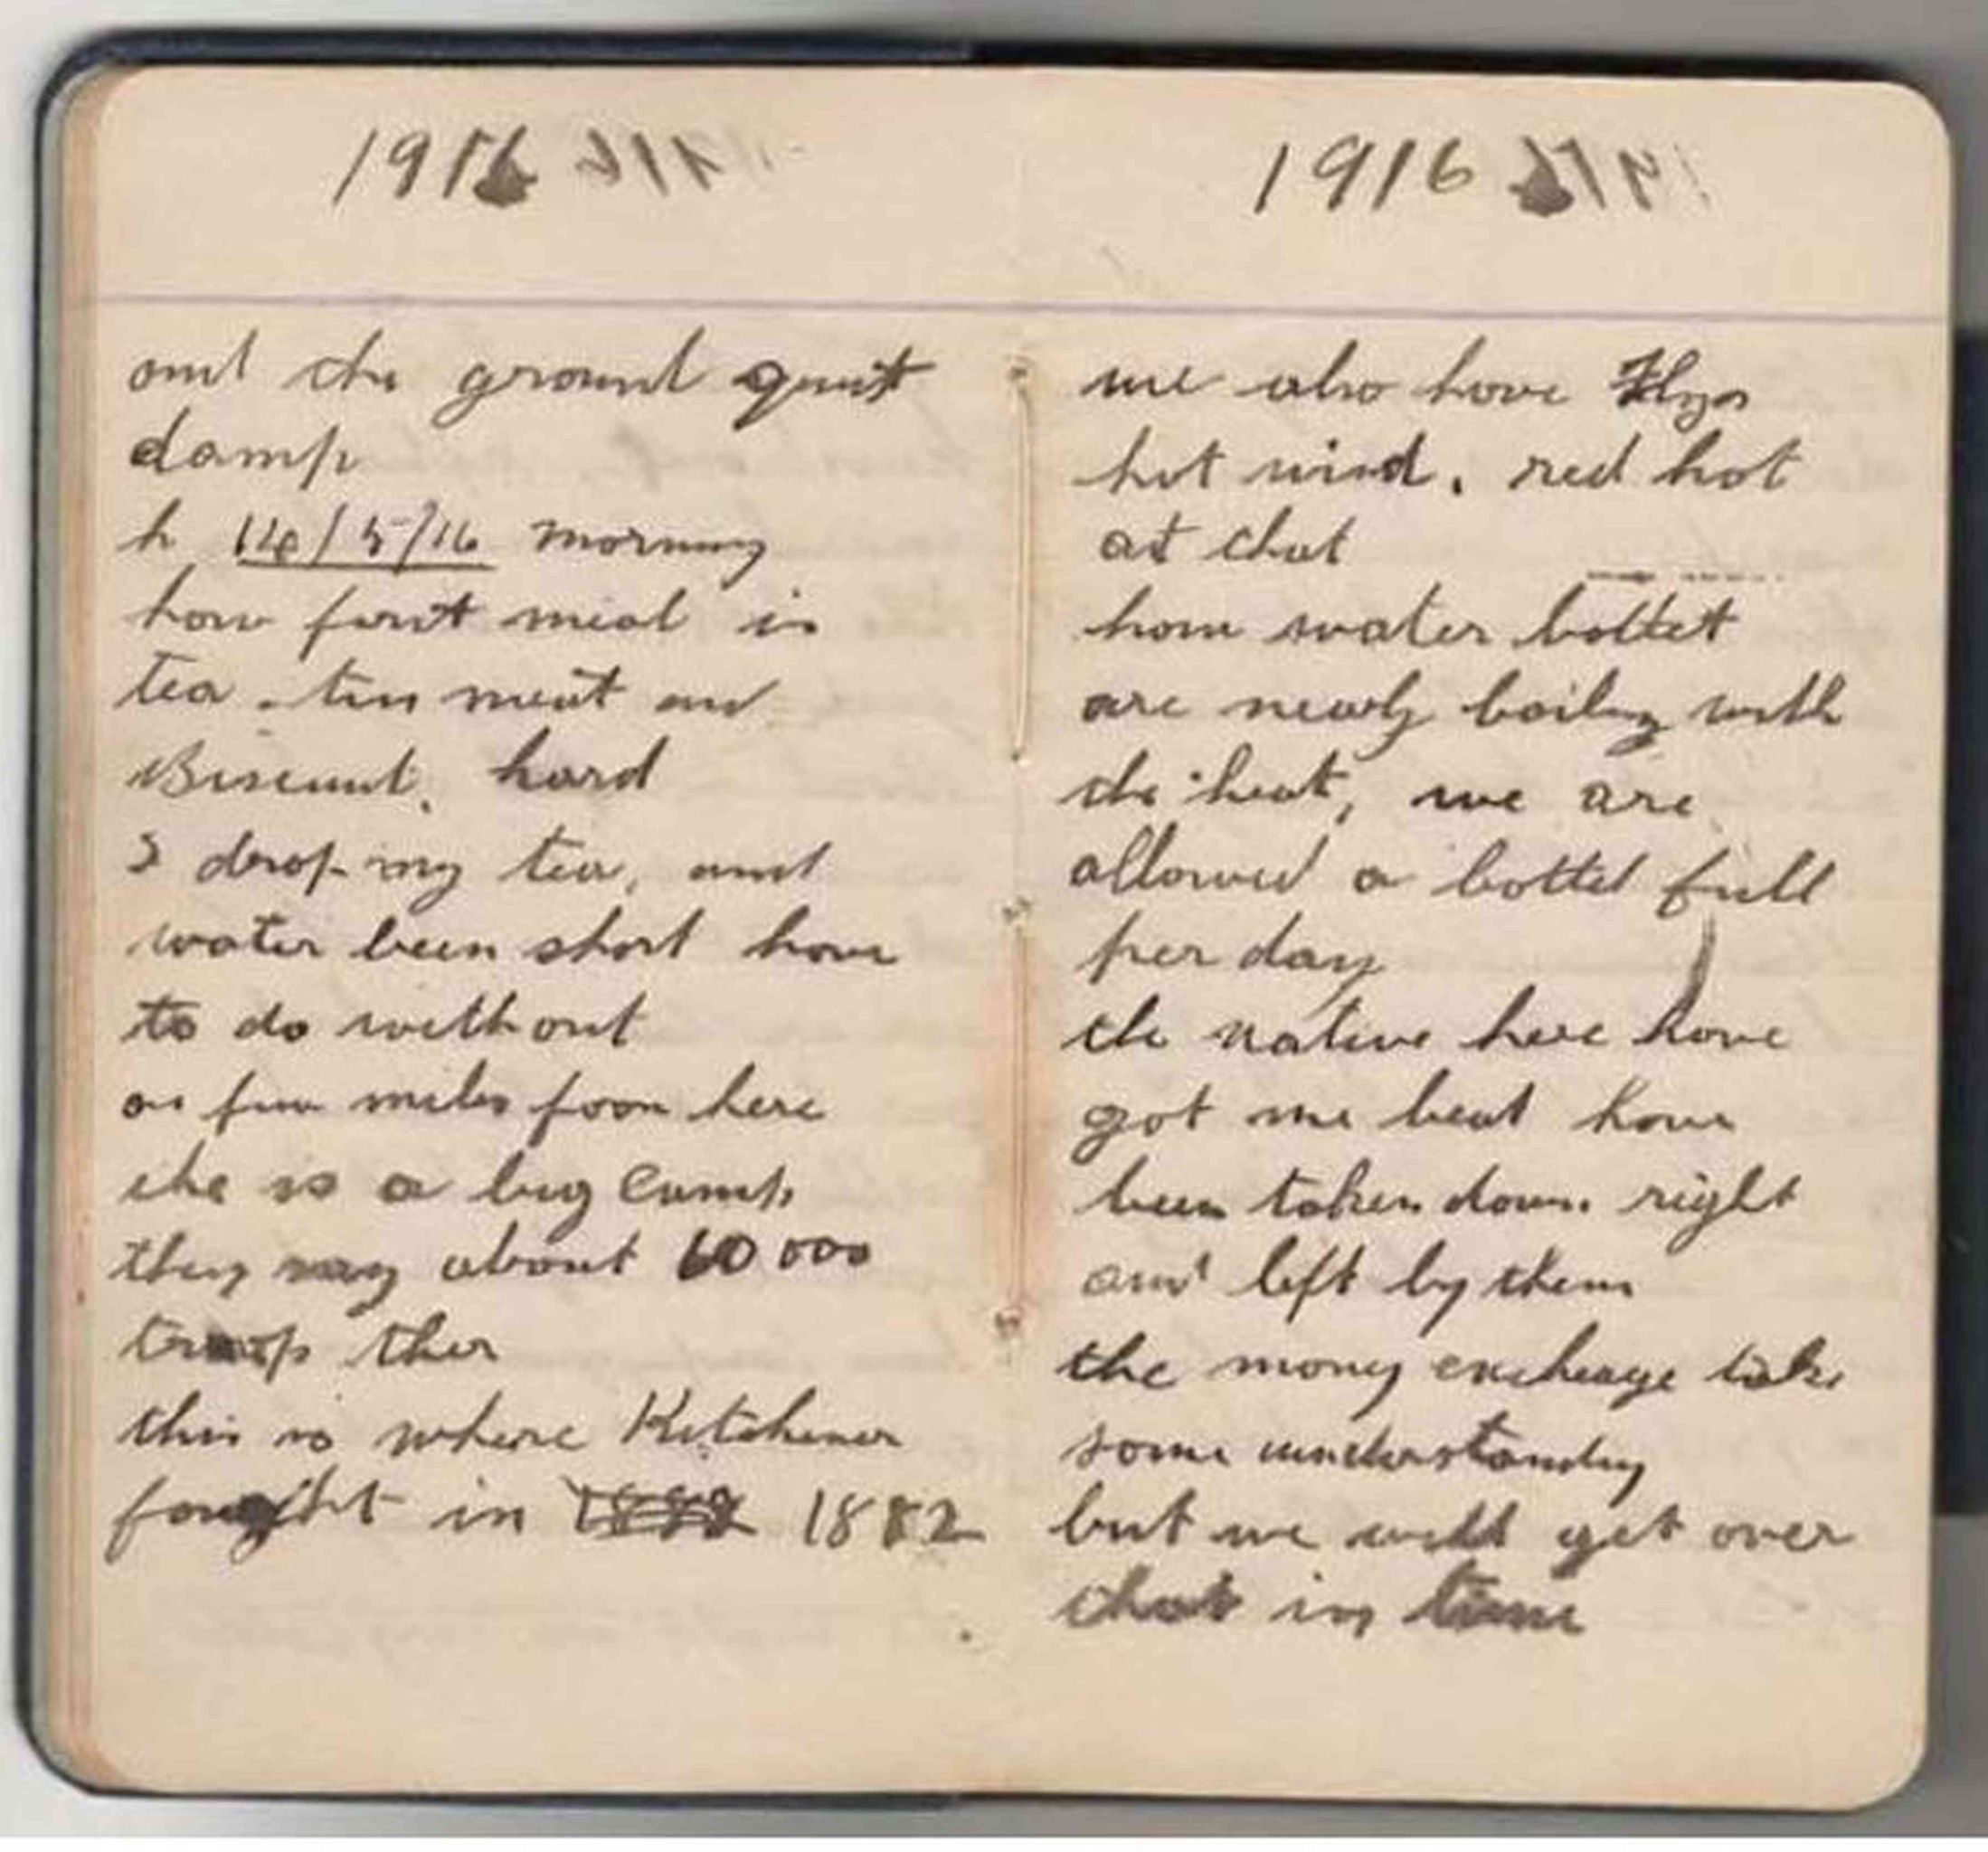 1916
and the ground quit
damp
h 14/5/16 morning
how first meal is
tea - tin meat and
Biscuut. hard
I drop my tea, and
water been short have
to do without
a few miles from here
the is a big Camp
they say about 60 000
troop ther
this is where Kitchener
fought in 1882 1882
1916
we also have Flys
hot wind. red hot
at that
how water bottet
are nearly boiling with
the heat, we are
allowed a bottel full
per day
the native here have
got me beat have
been taken down right
and left by them
the money exchange take
some understanding
but we will get over
that in time